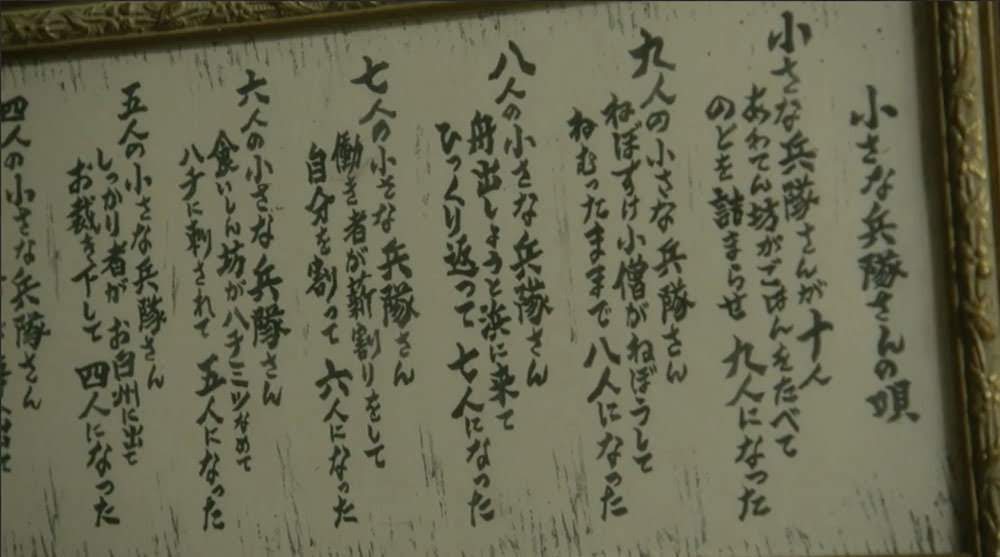 小さな兵隊さんの唄
小さな兵隊さんが十人
あわてん坊がごはんをたべて
のどを詰まらせ 九人になった
九人の小さな兵隊さん
ねぼすけ小僧がねぼうして
ねむったままで 八人になった
八人の小さな兵隊さん
舟出しようと浜に来て
ひっくり返って 七人になった
七人の小さな兵隊さん
働き者が薪割りをして
自分を割って 六人になった
六人の小さな兵隊さん
食いしん坊がハチミツなめて
ハチに刺されて 五人になった
五人の小さな兵隊さん
しっかり者が お白州に出て
お裁き下して 四人になった
四人の小さな兵隊さん